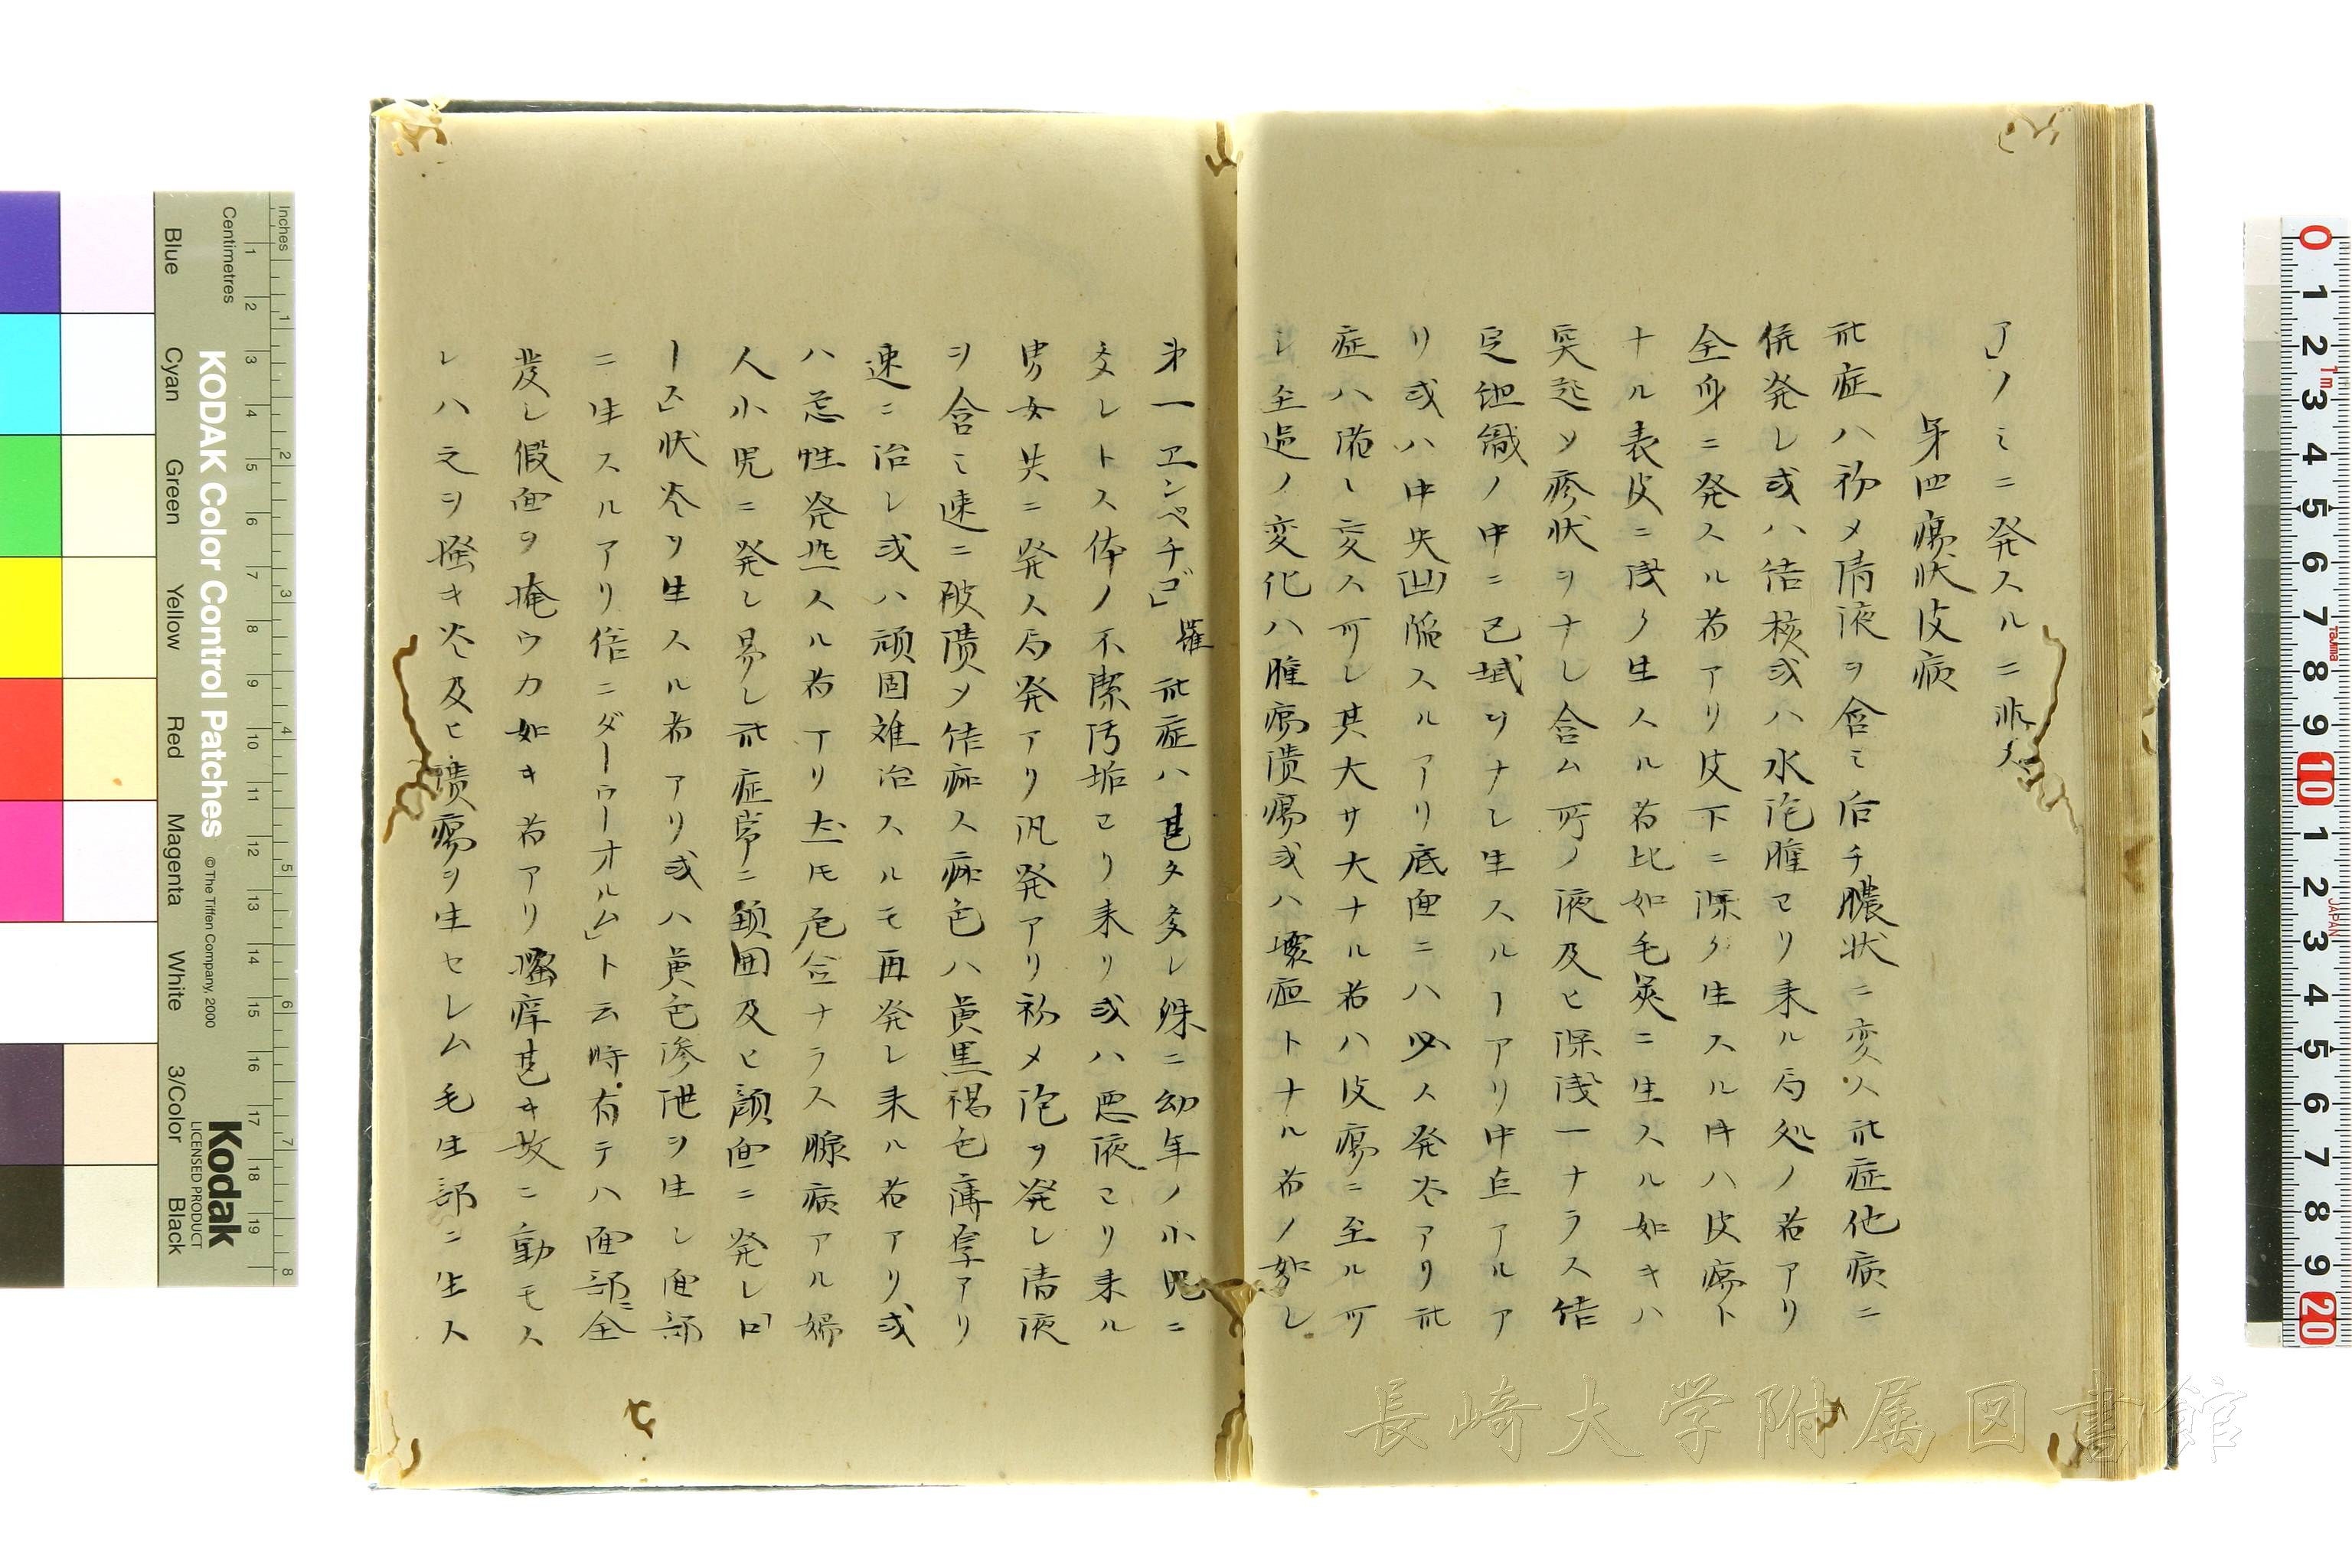 ア」ノミニ発スルニ非ス
第四瘍状皮病
此症ハ初メ清液ヲ含ミ后チ膿状ニ変ス此症他病ニ
併発シ或ハ結核或ハ水疱腫ヨリ来ル局処ノ者アリ
全身ニ発スル者アリ皮下ニ深ク生スル時ハ皮瘍ト
ナル表皮ニ浅ク生スル者比如毛嚢ニ生スル如キハ
突起ソ疹状ヲナシ含ム所ノ液及ヒ深浅一ナラス結
定組織ノ中ニ己域ヲナシ生スルヿアリ中点アルア
リ或ハ中央凹陥スルアリ底面ニハ必ス発炎アリ此
症ハ潰ト変ス可シ其大サ大ナル者ハ皮瘍ニ至ル可
シ至過ノ変化ハ腫瘍潰瘍或ハ壊疽トナル者ノ如シ
第一エンペチゴ」羅 此症ハ甚タ多シ殊ニ幼年ノ小児ニ
多シトス体ノ不潔汚垢ヨリ来リ或ハ悪液ヨリ来ル
男女共ニ発ス局発アリ汎発アリ初メ疱ヲ発シ清液
ヲ含ミ速ニ破潰メ結痂ス痂色ハ黄黒褐色薄厚アリ
速ニ治シ或ハ頑固難治スルモ再発シ来ル者アリ或
ハ急性発熱スル者アリ然𪜈危険ナラス腺病アル婦
人小児ニ発シ易シ此症常ニ頭囲及ヒ顔面ニ発シ「ロ
ース」状炎ヲ生スル者アリ或ハ黄色滲泄ヲ生シ面部
ニ生スルアリ俗ニダーウーオルム」ト云時有テハ面部ニ全
発シ假面ヲ掩ウカ如キ者アリ瘙痒甚キ故ニ動モス
レハ之ヲ掻キ炎及ヒ潰瘍ヲ生セシム毛生部ニ生ス
Inches
Centimetres
KODAK Color Control Patches
©The Tiffen Company, 2000
Kodak
LICENSED PRODUCT
Blue
Cyan
Green
Yellow
Red
Magenta
White
3/Color
Black
長崎大学附属図書館